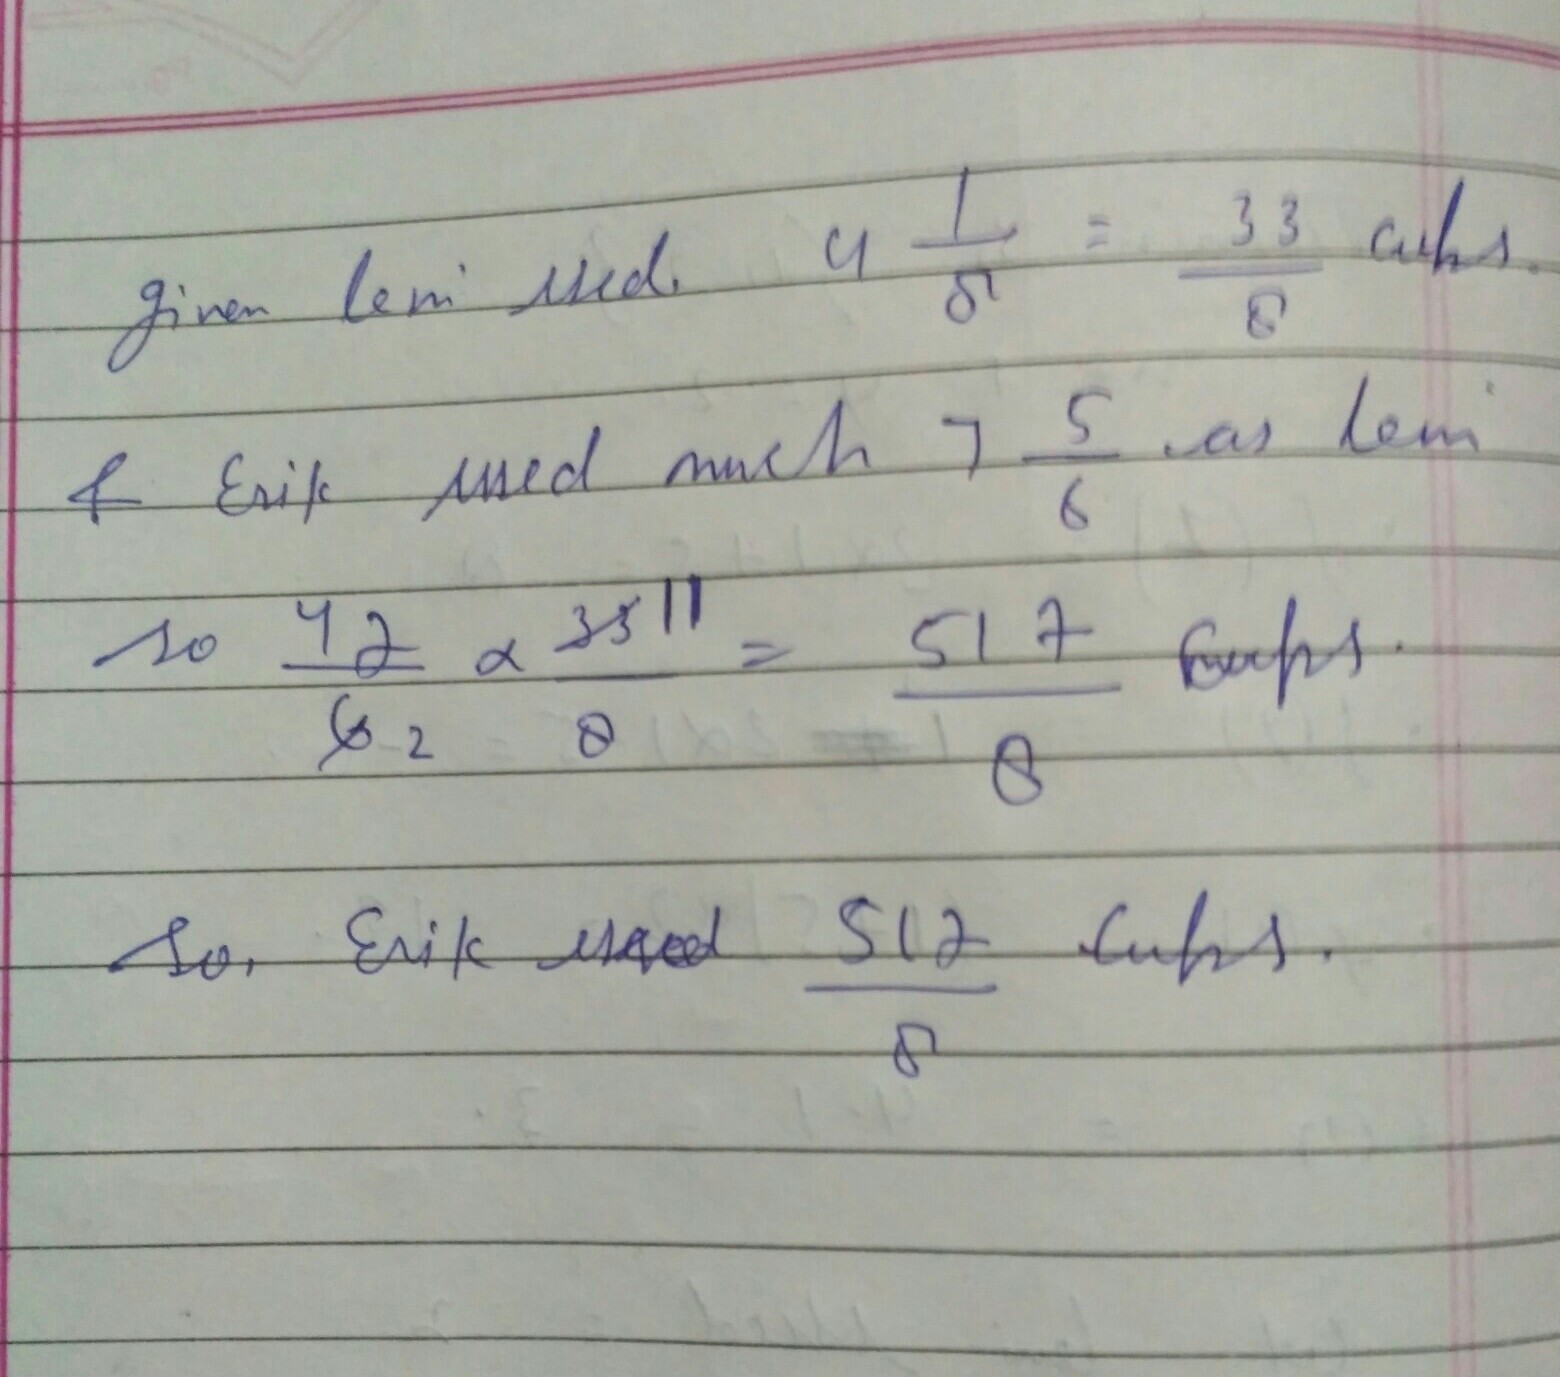 given Lemi used. 4 1/8 = 33/8 cups.
& Erik used much 7 5/6 as Lemi
so 47/6 2 × 33 11/8 = 517/8 cups.
So, Erik used 517/8 cups.